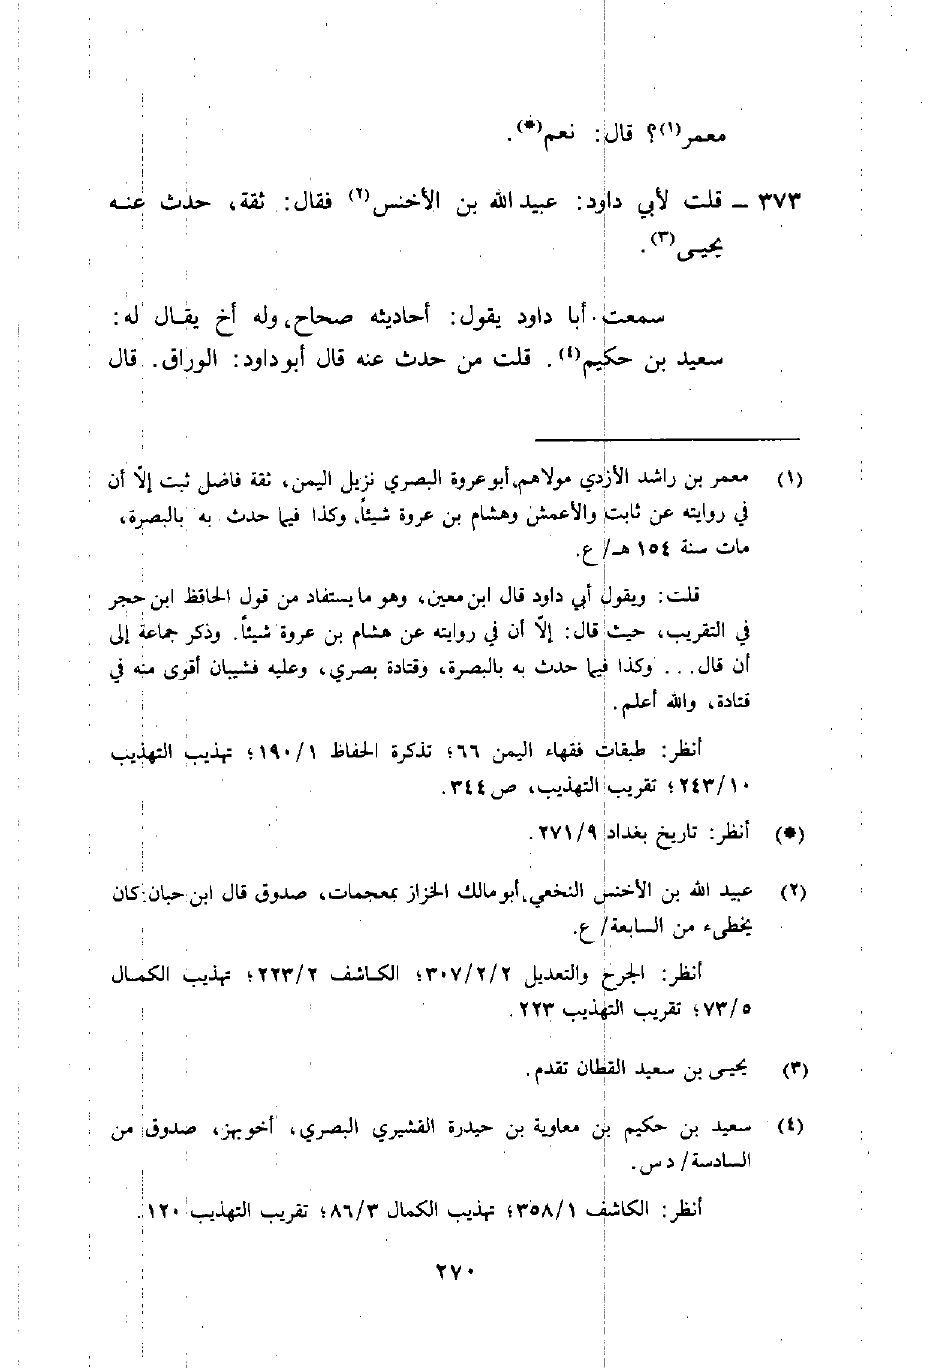 معمر(١)؟ قال: نعم(*).
٣٧٣ ــ قلت لأبي داود: عبيد الله بن الأخنس(٢) فقال: ثقة، حدث عنه
يحيى(٣).
سمعت أبا داود يقول: أحاديثه صحاح، وله أخ يقال له:
سعيد بن حكيم(٤). قلت من حدث عنه قال أبو داود: الوراق. قال
(١) معمر بن راشد الأزدي مولاهم، أبو عروة البصري نزيل اليمن، ثقة فاضل ثبت إلاّ أن
في روايته عن ثابت والأعمش وهشام بن عروة شيئاً، وكذا فيما حدث به بالبصرة،
مات سنة ١٥٤ هـ/ ع.
قلت: ويقول أبي داود قال ابن معين، وهو ما يستفاد من قول الحافظ ابن حجر
في التقريب، حيث قال: إلاّ أن في روايته عن هشام بن عروة شيئاً. وذكر جماعة إلى
أن قال... وكذا فيما حدث به بالبصرة، وقتادة بصري، وعليه فشيبان أقوى منه في
قتادة، والله أعلم.
أنظر: طبقات فقهاء اليمن ٦٦؛ تذكرة الحفاظ ١٩٠/١؛ تهذيب التهذيب
٢٤٣/١٠؛ تقريب التهذيب، ص ٣٤٤.
(*) أنظر: تاريخ بغداد ٢٧١/٩.
(٢) عبيد الله بن الأخنس النخعي، أبو مالك الخزاز بمعجمات، صدوق قال ابن حبان: كان
يخطىء من السابعة/ ع.
أنظر: الجرح والتعديل ٣٠٧/٢/٢؛ الكاشف ٢٢٣/٢؛ تهذيب الكمال
٧٣/٥؛ تقريب التهذيب ٢٢٣.
(٣) يحيى بن سعيد القطان تقدم.
(٤) سعيد بن حكيم بن معاوية بن حيدرة القشيري البصري، أخو بهز، صدوق من
السادسة/ د س.
أنظر: الكاشف ٣٥٨/١؛ تهذيب الكمال ٨٦/٣؛ تقريب التهذيب ١٢٠.
٢٧٠